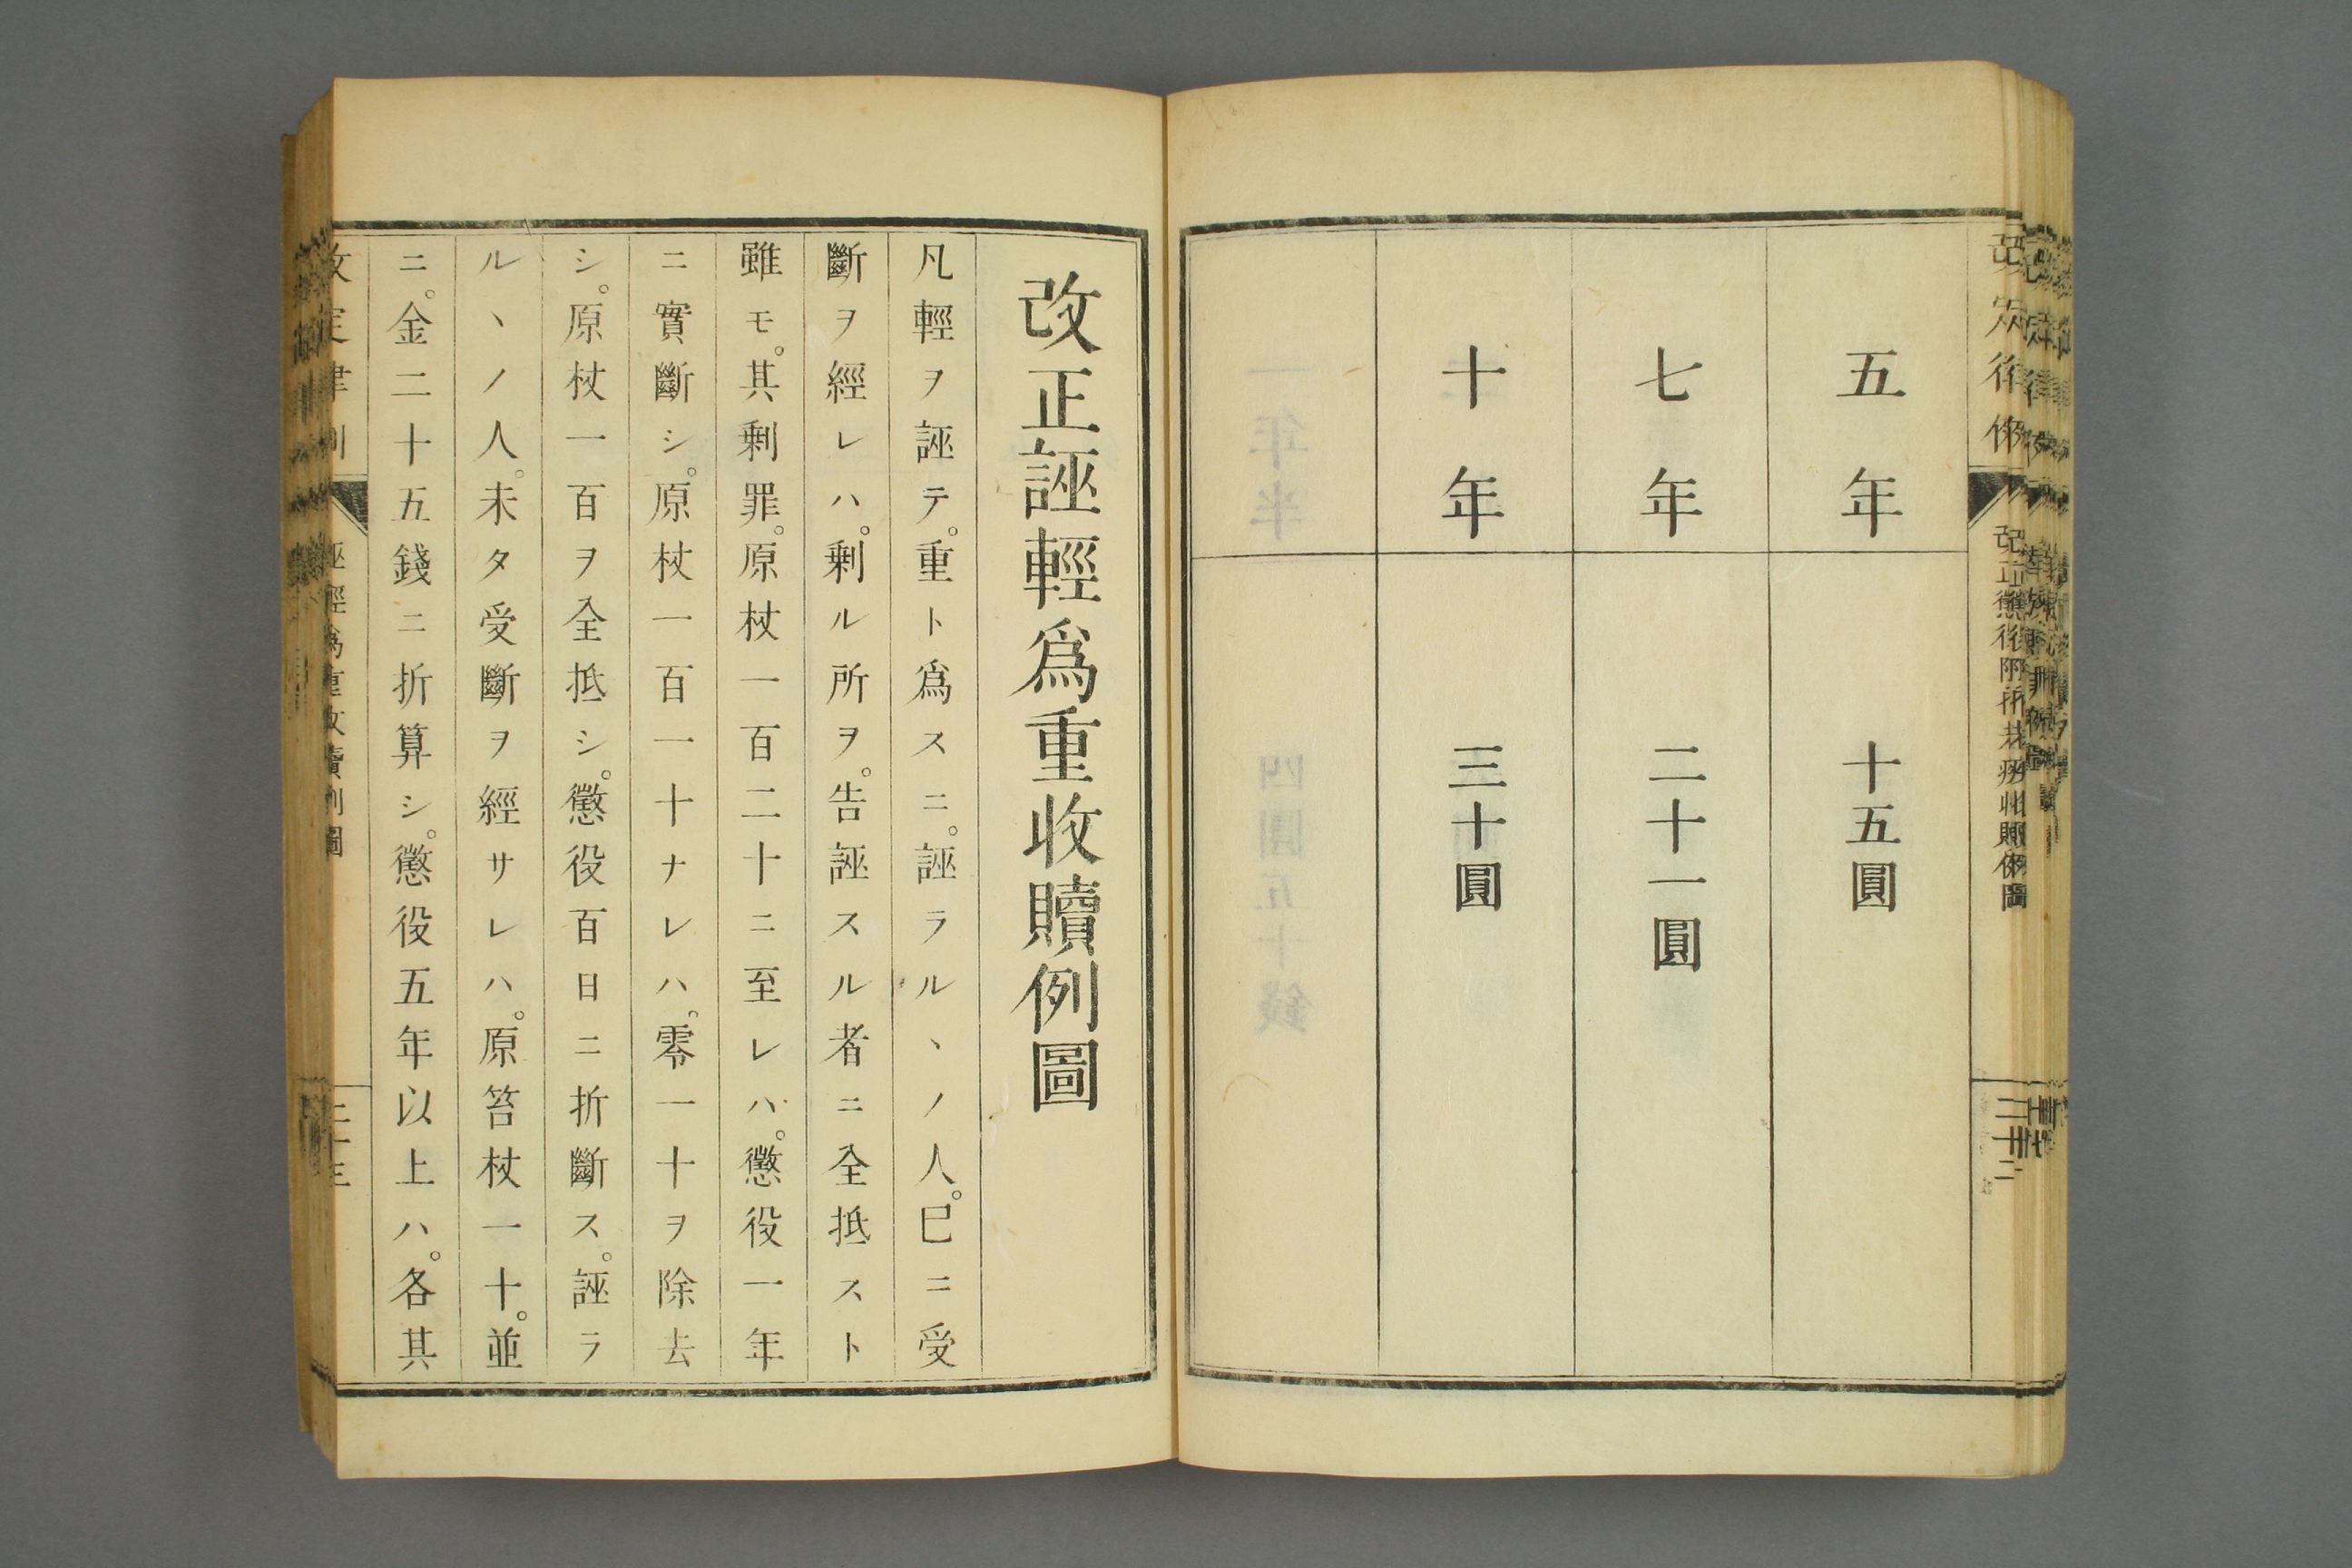 五年
十五圓
七年
二十一圓
十年
三十圓
改正誣輕爲重收贖例圖
凡輕ヲ誣テ。重ト爲スニ。誣ラルヽノ人。巳ニ受
斷ヲ經レハ。剩ル所ヲ。告誣スル者ニ全抵スト
雖モ。其剩罪。原杖一百二十ニ至レハ。懲役一年
ニ實斷シ。原杖一百一十ナレハ。零一十ヲ除去
シ。原杖一百ヲ全抵シ。懲役百日ニ折斷ス。誣ラ
ルヽノ人。未タ受斷ヲ經サレハ。原笞杖一十。並
ニ。金二十五錢ニ折算シ。懲役五年以上ハ。各其